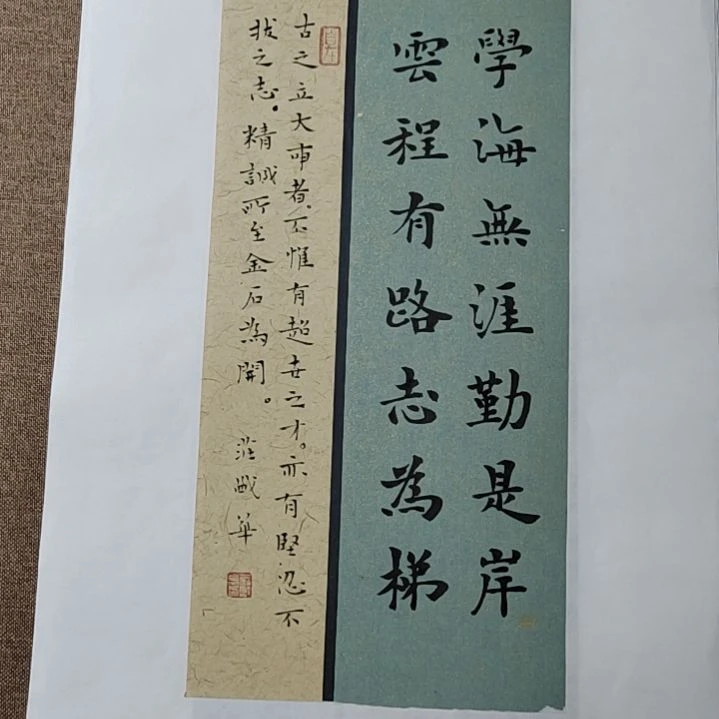 學海無涯勤是岸
雲程有路志為梯
古之立大事者不惟有超世之才。亦有堅忍不
拔之志。精誠所至金石為開。
莊 華